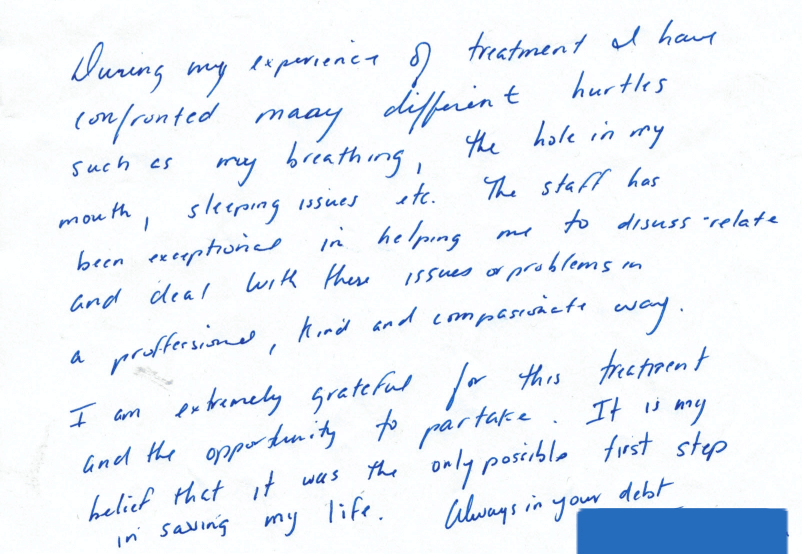 During my experience of treatment I have
confronted maay different hurtles
such as my breathing, the hole in my
mouth, sleeping issues etc. The staff has
been exceptional in helping me to disuss-relate
and deal with these issues or problems in
a proffersional, kind and compasionate way.
I am extremely grateful for this treatment
and the opportunity to partake. It is my
belief that it was the only possible first step
in saving my life. Always in your debt